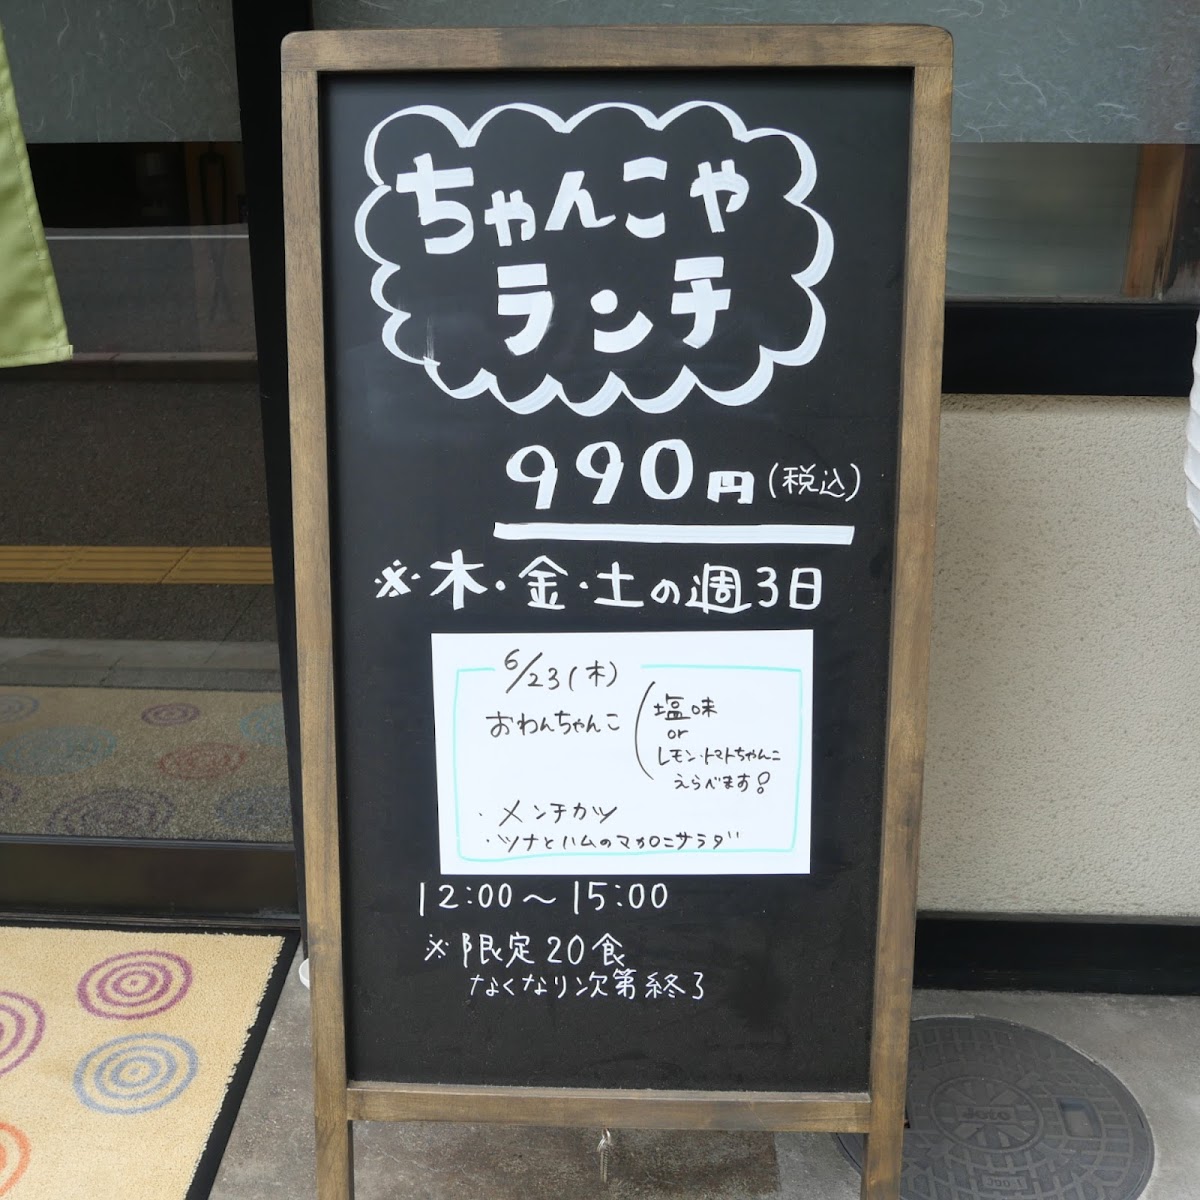 ちゃんこや
ランチ
990円(税込)
※木・金・土の週3日
6/23(木)
おわんちゃんこ
塩味
or
レモン・トマトちゃんこ
えらべます!
・メンチカツ
・ツナとハムのマカロニサラダ
12:00～15:00
※限定20食
なくなり次第終了